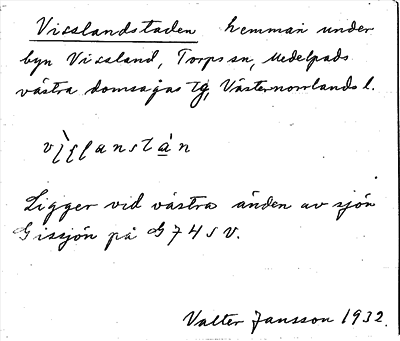 Visslandstaden hemman under
byn Vissland, Torps sn, Medelpads
västra domsagas tg, Västernorrlands l.
Ligger vid västra änden av sjön
Gissjön på G 74 S V.
Valter Jansson 1932.